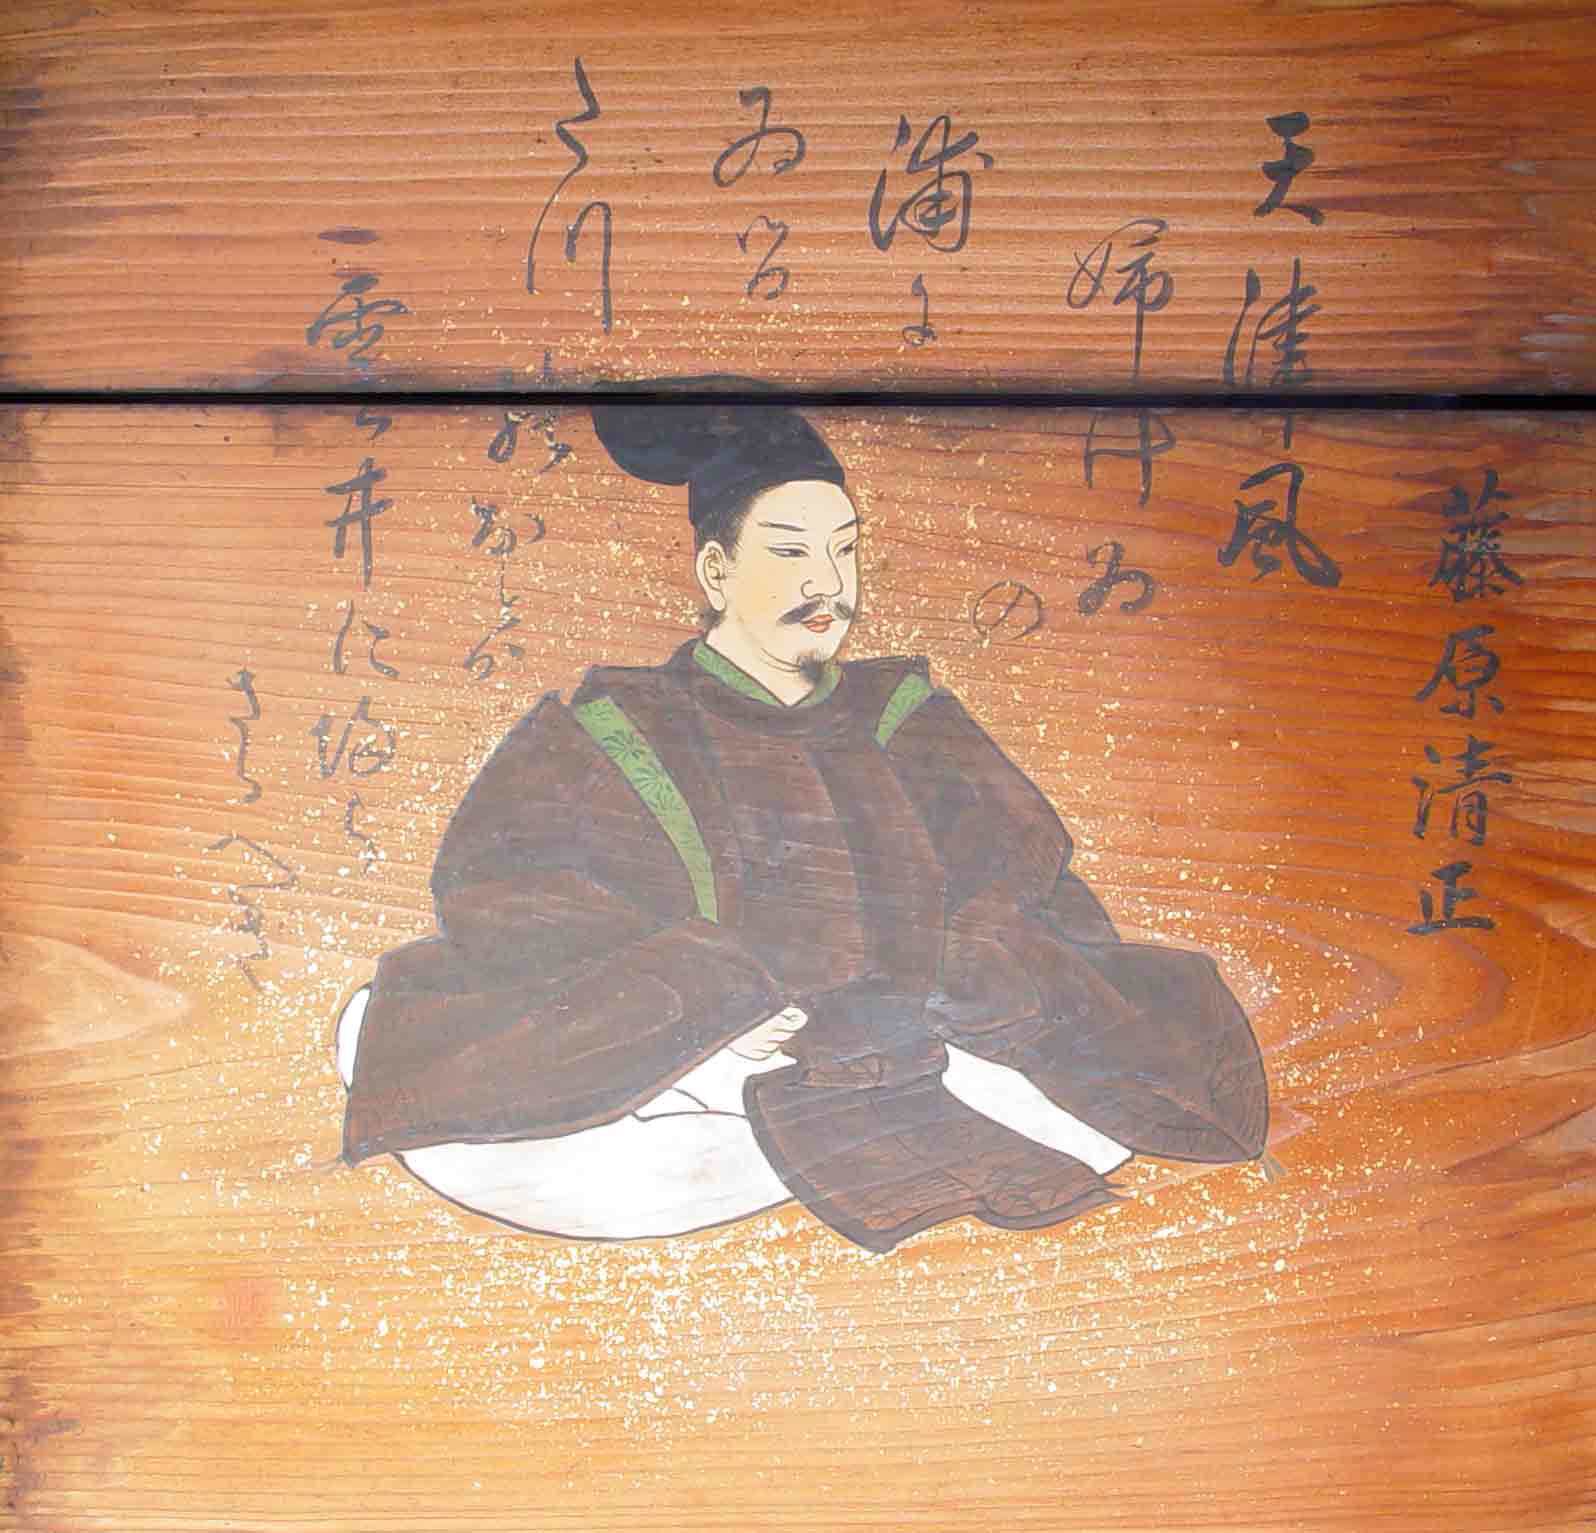 藤原清正
天津風
婦けゐの
浦に
ゐ留
た川
能なとか
雲井に帰ら
さるへき